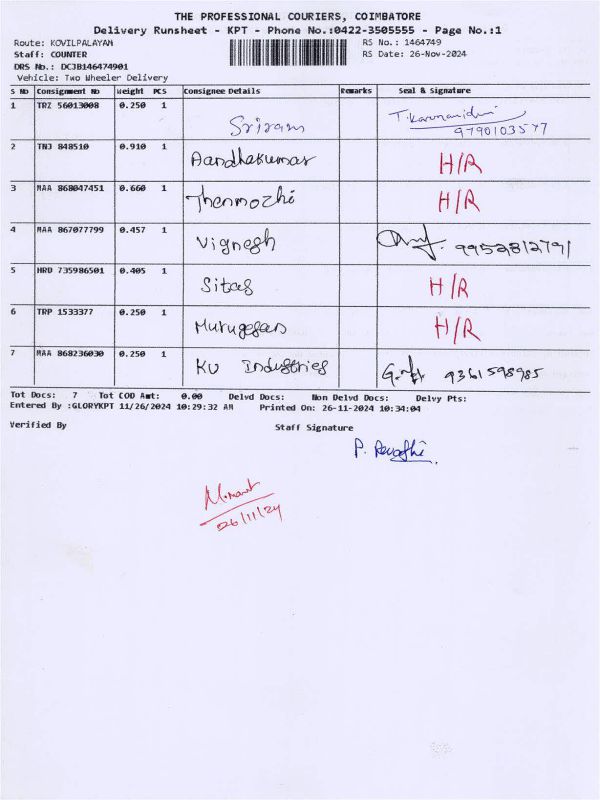 THE PROFESSIONAL COURIERS, COIMBATORE
Delivery Runsheet - KPT - Phone No.:0422-3505555 - Page No.:1
Route: KOVILPALAYAM RS No. : 1464749
Staff: COUNTER RS Date: 26-Nov-2024
DRS No.: DCJB146474901
Vehicle: Two Wheeler Delivery
S No Consignment No Weight PCS Consignee Details Remarks Seal & Signature
1 TRZ 56013008 0.250 1 Sriram 9790103577
2 TNJ 848510 0.910 1 Aandhakumar H/R
3 MAA 868047451 0.660 1 Thenmozhi H/R
4 MAA 867077799 0.457 1 Vignesh 9952812791
5 HRD 735986501 0.405 1 Sitas H/R
6 TRP 1533377 0.250 1 Murugesan H/R
7 MAA 868236030 0.250 1 KU Industries 9361598985
Tot Docs: 7 Tot COD Amt: 0.00 Delvd Docs: Non Delvd Docs: Delvy Pts:
Entered By :GLORYKPT 11/26/2024 10:29:32 AM Printed On: 26-11-2024 10:34:04
Verified By Staff Signature
26/11/24